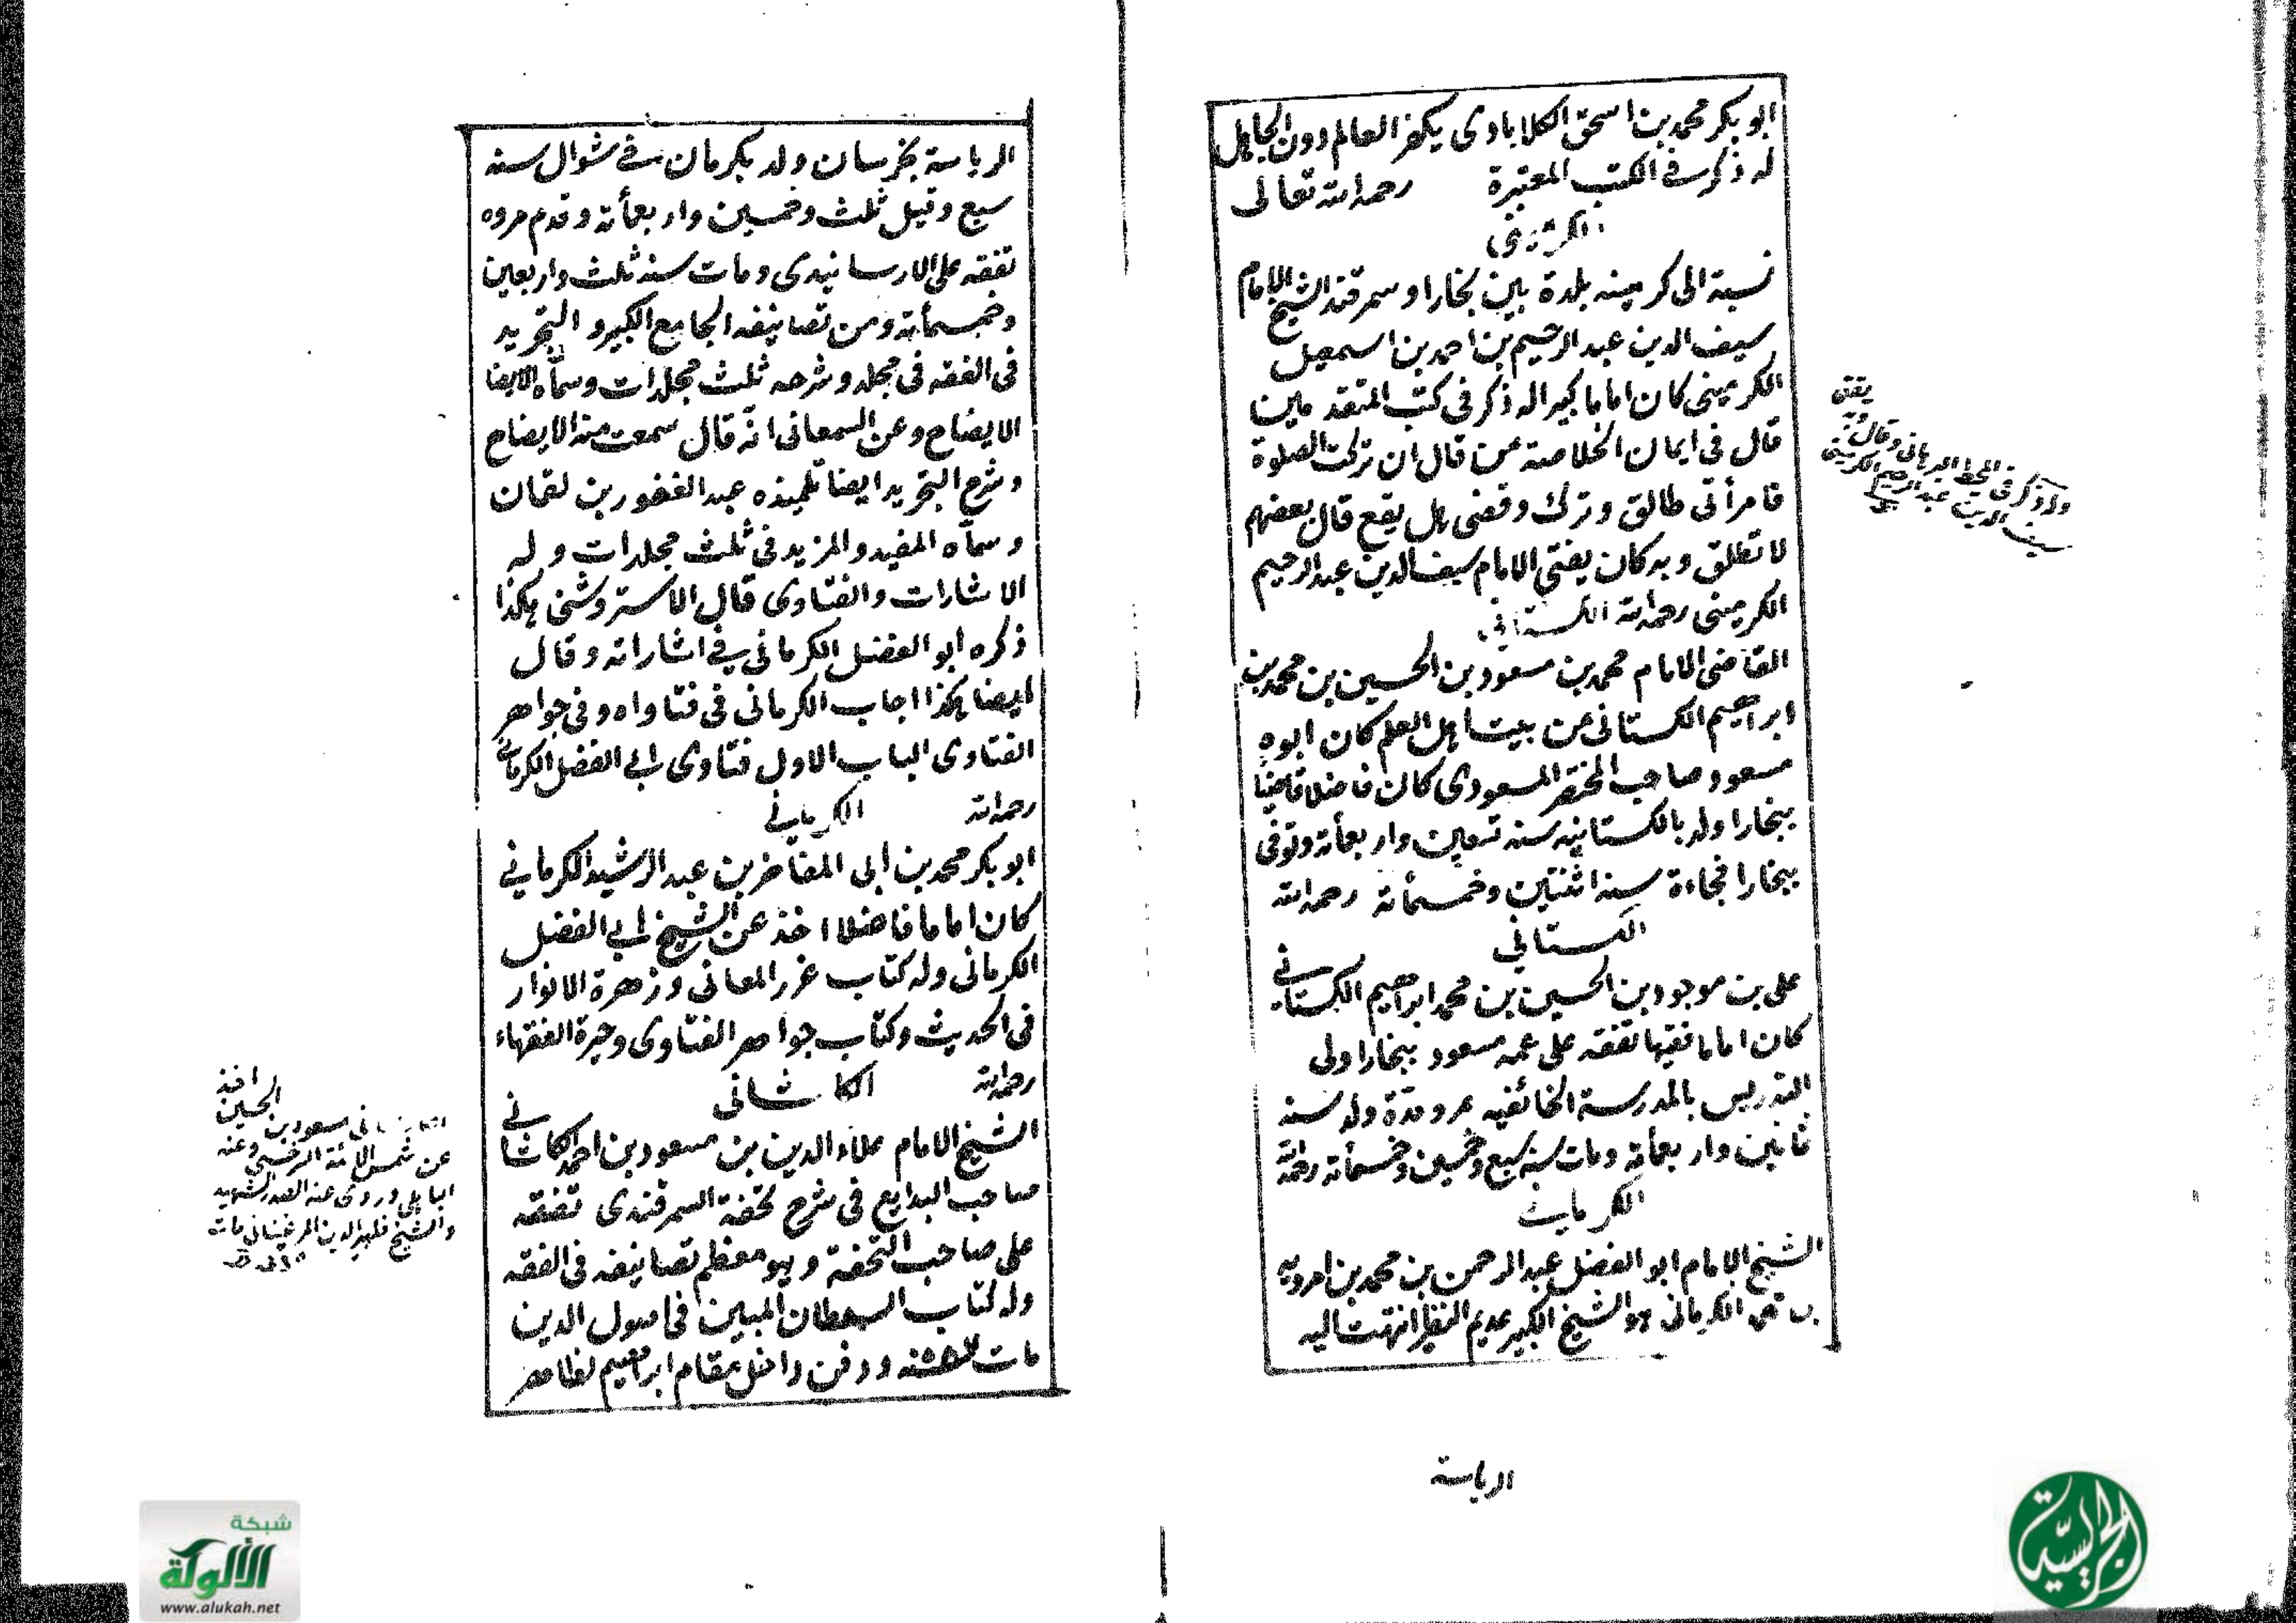 ابو بكر محمد بن اسحق الكلابادى يكفر العالم دون الجاهل
له ذكر فى الكتب المعتبرة رحمه الله تعالى
نسبة الى كرمينه بلدة بين بخارا وسمرقند الشيخ الامام
سيف الدين عبد الرحيم بن احمد بن اسمعيل
الكرمينى كان اماما كبيرا له ذكر فى كتب المتقدمين
قال فى ايمان الخلاصة عمن قال ان تركت الصلوة
فامرأتى طالق وترك وقضى هل يقع قال بعضهم
لا تطلق وبه كان يفتى الامام سيف الدين عبد الرحيم
الكرمينى رحمه الله الكستانى
القاضى الامام محمد بن مسعود بن الحسين بن محمد بن
ابراهيم الكستانى من بيت اهل العلم كان ابوه
مسعود صاحب المختصر المسعودى كان فاضلا قاضيا
ببخارا ولد بالكستانيه سنه تسعين واربعمأته وتوفى
ببخارا فجاءة سنه اثنتين وخمسمأته رحمه الله
الكستانى
على بن موجود بن الحسين بن محمد ابراهيم الكستانى
كان اماما فقيها تفقه على عمه مسعود ببخارا ولى
التدريس بالمدرسة الخاقانيه بمرو مدة ولد سنه
ثمانين واربعمأته ومات سنه سبع وخمسين وخمسمأته رحمه الله
الكرمانى
الشيخ الامام ابو الفضل عبد الرحمن بن محمد بن امرويه
الكرمانى هو الشيخ الكبير عديم النظير انتهت اليه
الرياسة
يفتى
وله ذكر فى المحيط البرهانى وقال
سيف الدين عبد الرحيم الكرمينى
الرياسة بخرسان ولد بكرمان فى شوال سنه
سبع وقيل ثلث وخمسين واربعمأته وقدم مروه
تفقه على الارسانيدى ومات سنه ثلث واربعين
وخمسمأته ومن تصانيفه الجامع الكبير والتجريد
فى الفقه فى مجلد وشرحه ثلث مجلدات وسمّاه الايضا
الايضاح وعن السمعانى انّه قال سمعت منه الايضاح
وشرح التجريد ايضا تلميذه عبد الغفور بن لقمان
وسمّاه المفيد والمزيد فى ثلث مجلدات وله
الاشارات والفتاوى قال الاستروشنى هكذا
ذكره ابو الفضل الكرمانى فى اشاراته وقال
ايضا هكذا اجاب الكرمانى فى فتاواه وفى جواهر
الفتاوى الباب الاول فتاوى ابى الفضل الكرمانى
رحمه الله الكرمانى
ابو بكر محمد بن ابى المفاخر بن عبد الرشيد الكرمانى
كان اماما فاضلا اخذ عن الشيخ ابى الفضل
الكرمانى وله كتاب غرر المعانى وزهرة الانوار
فى الحديث وكتاب جواهر الفتاوى وحيرة الفقهاء
رحمه الله الكاشانى
الشيخ الامام علاء الدين بن مسعود بن احمد الكاشانى
صاحب البدايع فى شرح تحفة السمرقندى تفقه
على صاحب التحفة وهو معظم تصانيفه فى الفقه
وله كتاب السلطان المبين فى اصول الدين
مات ودفن داخل مقام ابراهيم بظاهر
اخذ
الحسين
مسعود بن
عن شمس الائمة السرخسى وعنه
وروى عنه الصدر الشهيد
والشيخ ظهير الدين المرغينانى مات
شبكة
الألوكة
www.alukah.net